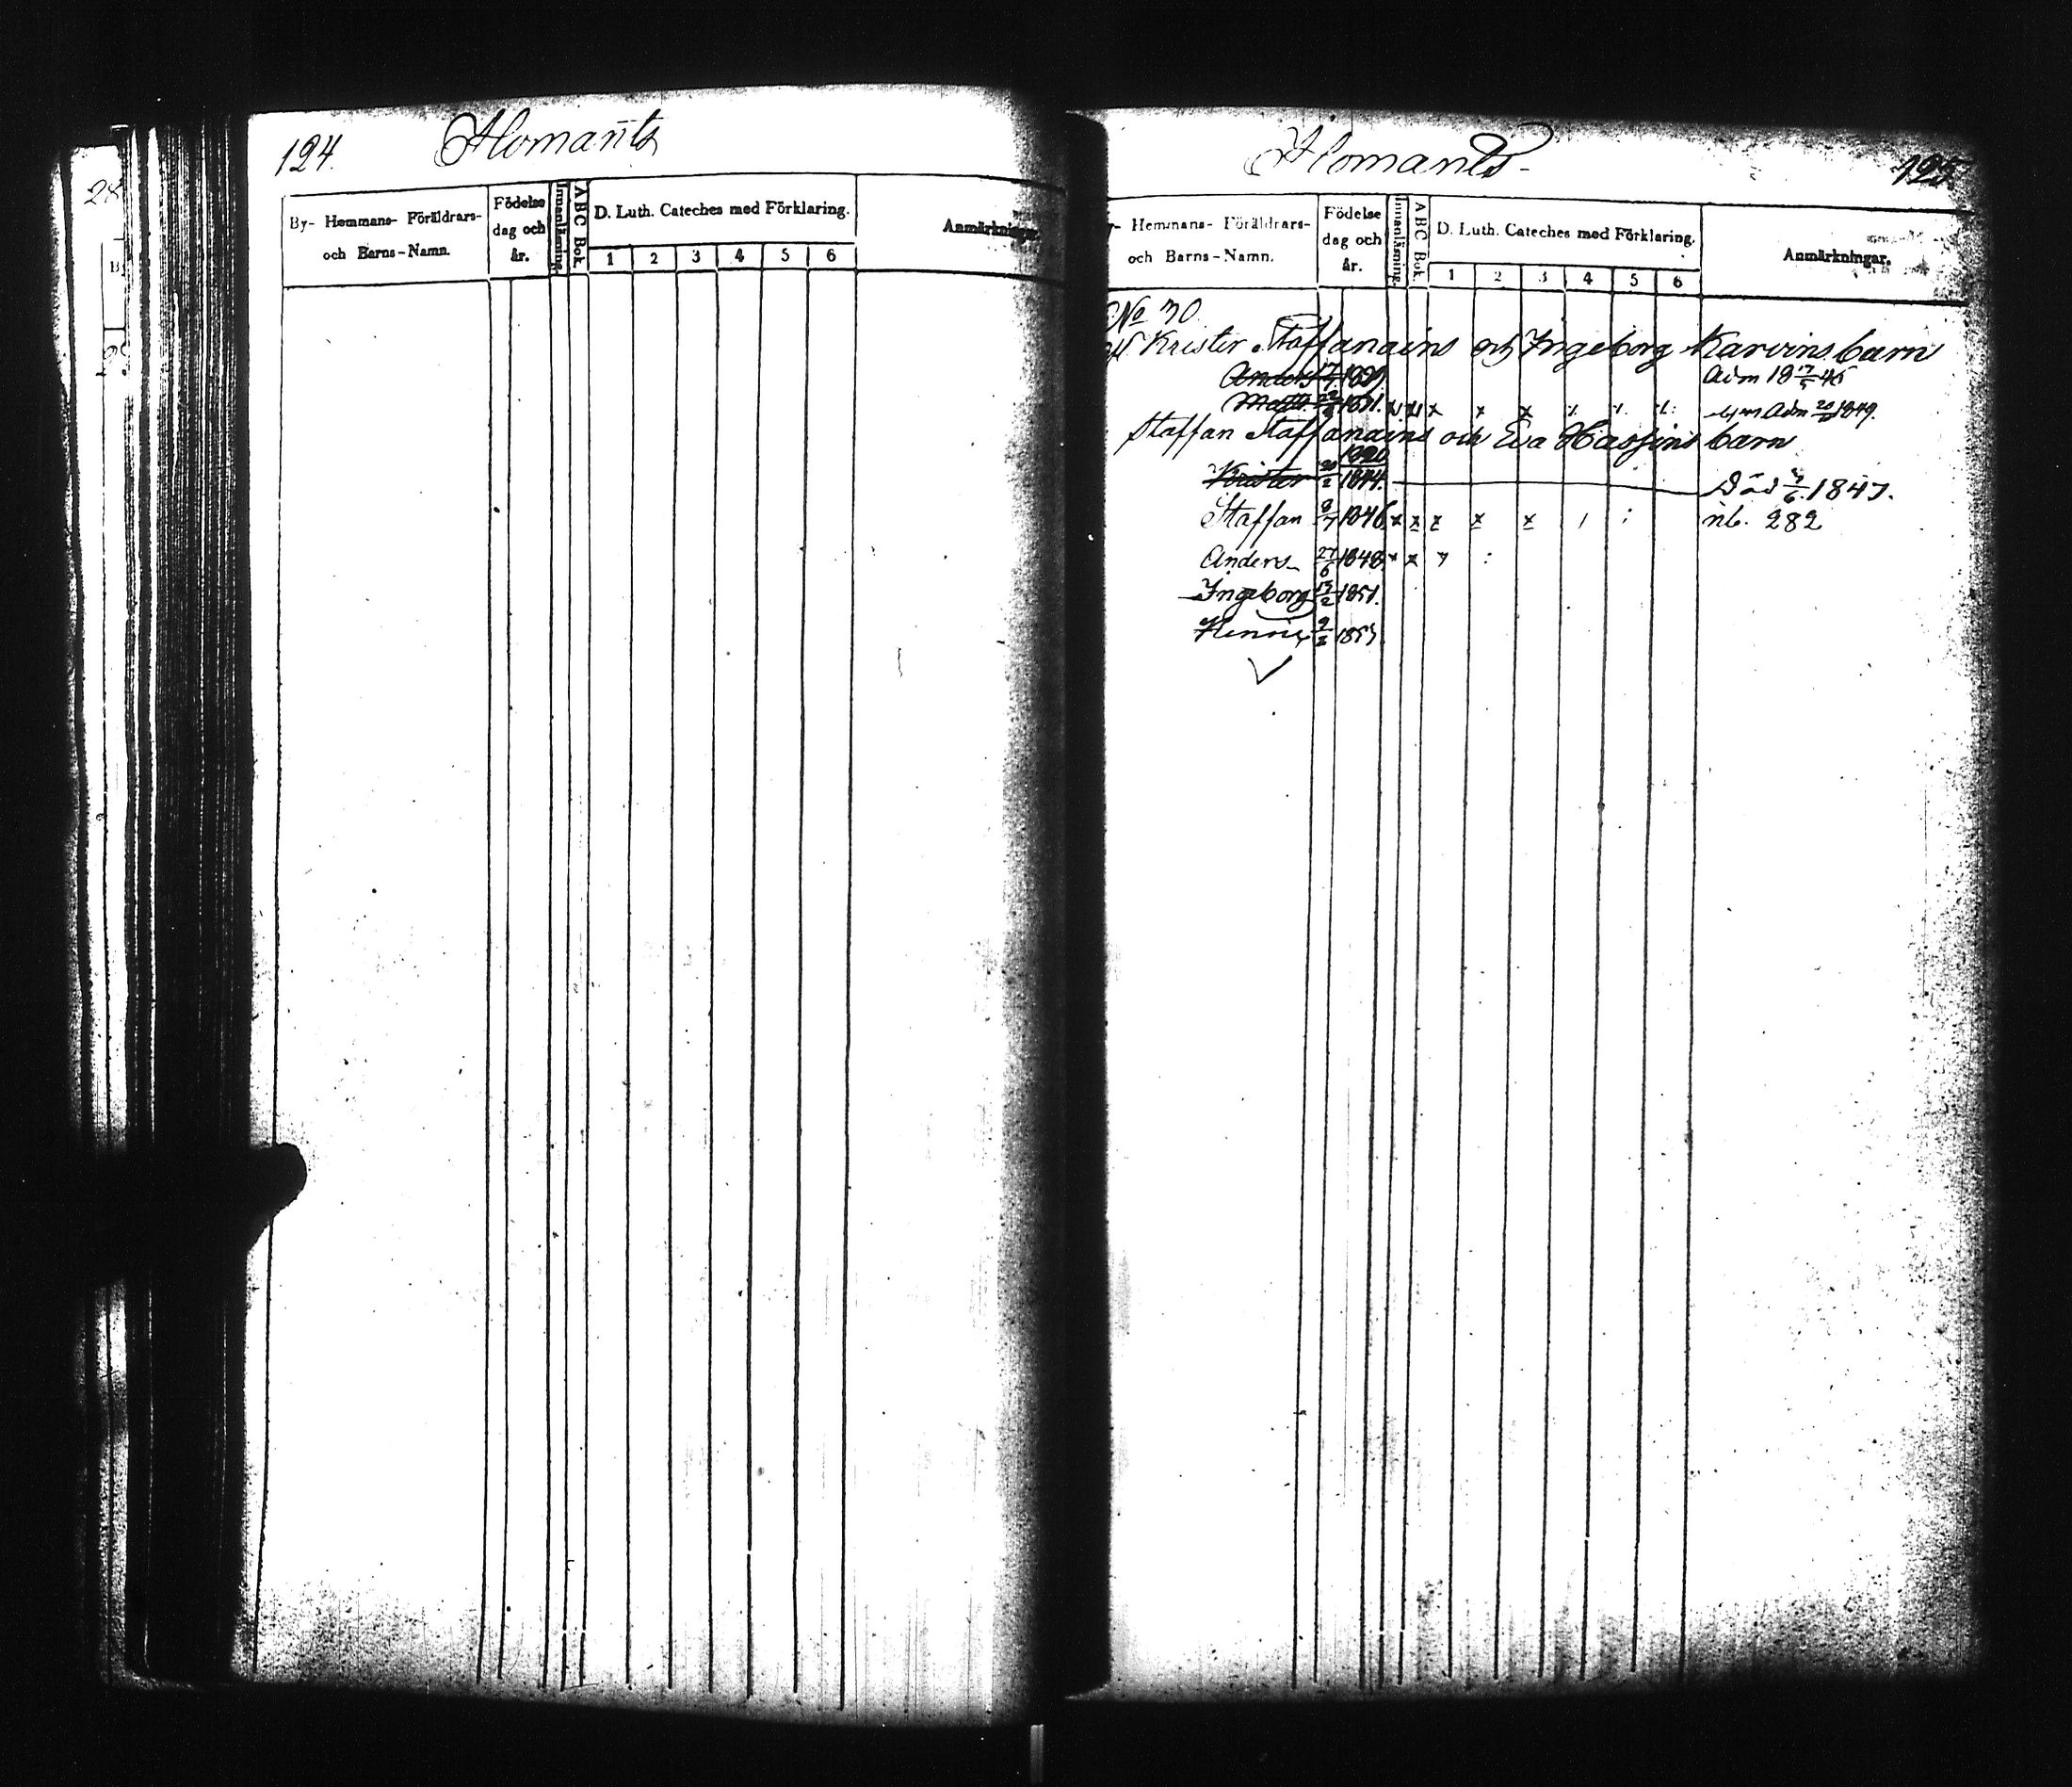 124. Homants
By- Hemmans- Föräldrars- och Barns-Namn.
Födelse dag och år.
Innanläsning.
ABC Bok.
D. Luth. Cateches med Förklaring.
1 2 3 4 5 6
Anmärkningar.
Homants 125
Hemmans- Föräldrars- och Barns-Namn.
Födelse dag och år.
Innanläsning.
ABC Bok.
D. Luth. Cateches med Förklaring.
1 2 3 4 5 6
Anmärkningar.
No 30
Krister Staffanains och Ingeborg Karvins barn
Anders 1829. Adm 18 17/5 45
Matts 1831. x x x x x Adm 20/5 1849.
Staffan Staffanains och Eva Hassins barn
Krister 20/2 1844. Död 1847.
Staffan 9/7 1846 x x x x x nb. 282
Anders 27/6 1848 x x
Ingeborg 13/2 1851.
Henric 1853